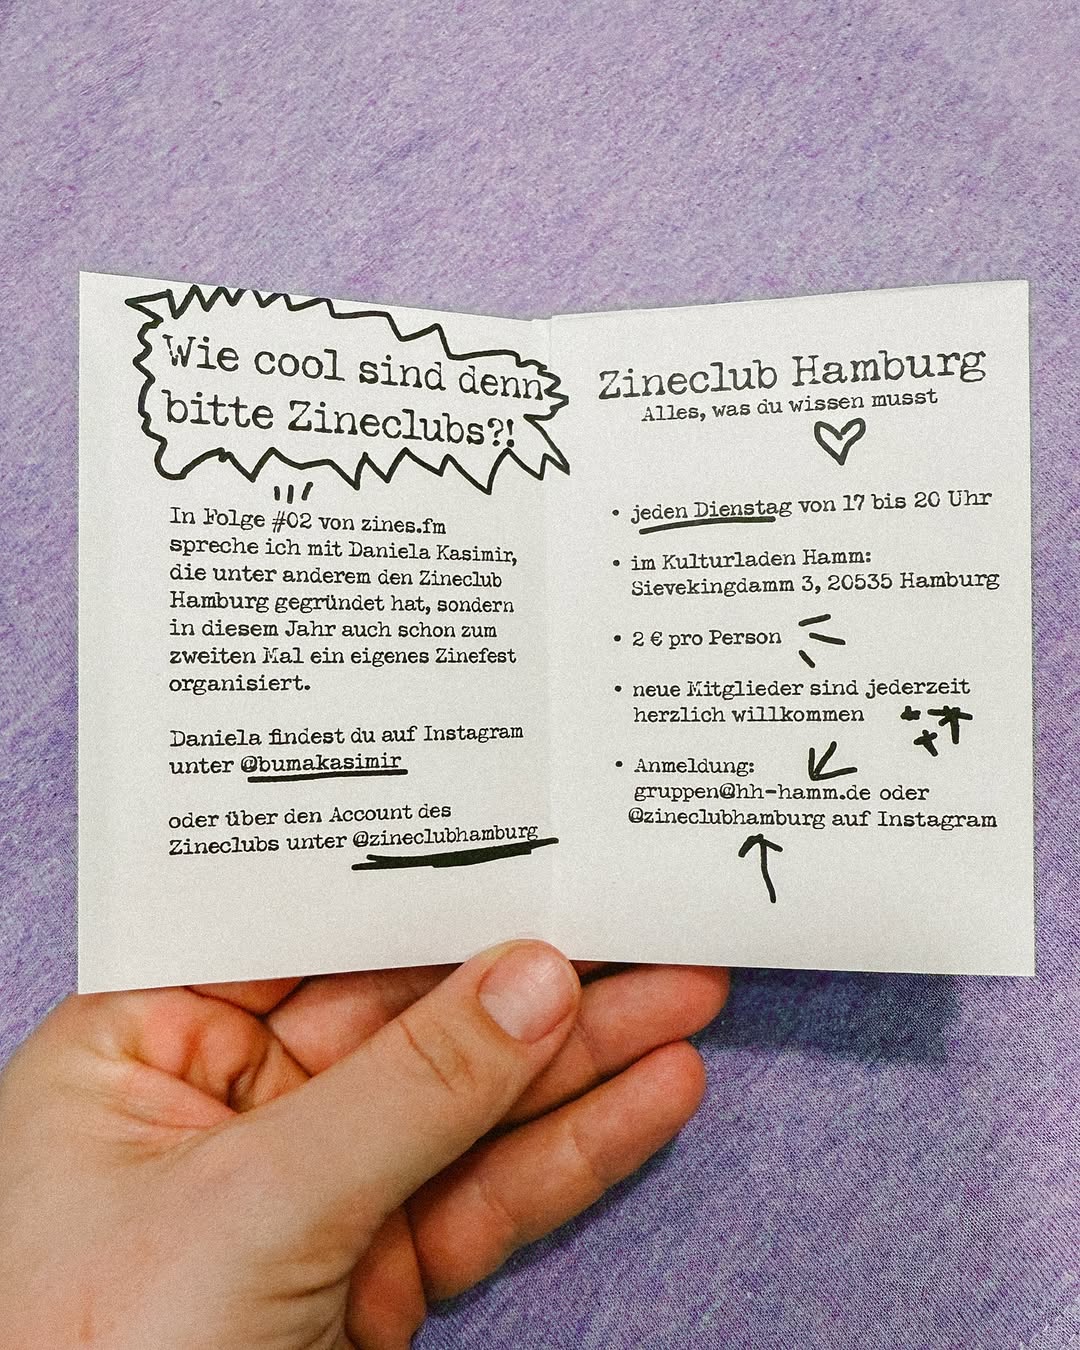 Wie cool sind denn
bitte Zineclubs?!
In Folge #02 von zines.fm
spreche ich mit Daniela Kasimir,
die unter anderem den Zineclub
Hamburg gegründet hat, sondern
in diesem Jahr auch schon zum
zweiten Mal ein eigenes Zinefest
organisiert.
Daniela findest du auf Instagram
unter @bumakasimir
oder über den Account des
Zineclubs unter @zineclubhamburg
Zineclub Hamburg
Alles, was du wissen musst
• jeden Dienstag von 17 bis 20 Uhr
• im Kulturladen Hamm:
Sievekingdamm 3, 20535 Hamburg
• 2 € pro Person
• neue Mitglieder sind jederzeit
herzlich willkommen
• Anmeldung:
gruppen@hh-hamm.de oder
@zineclubhamburg auf Instagram